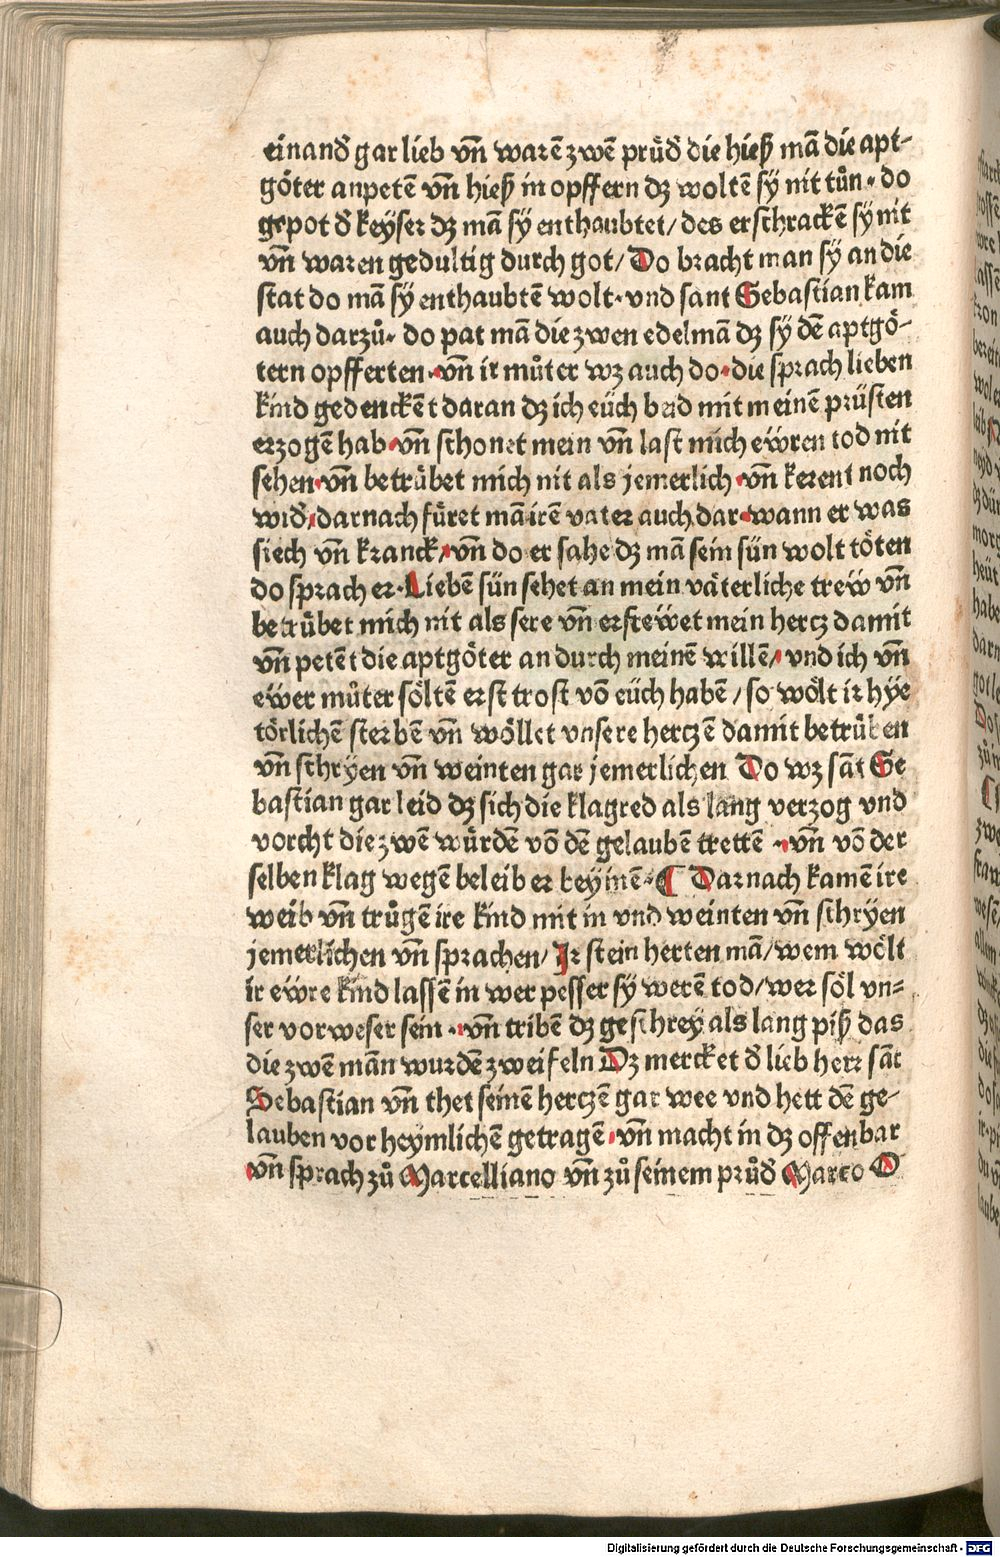 einand̄ gar lieb vñ warē zwē prüd̄ die hieß mā die apt-
göter anpetē vñ hieß in opffern dz woltē sÿ nit tůn · do
gepot d̄ keyser dz mā sÿ enthaubtet / des erschrackē sÿ nit
vñ waren gedultig durch got / Do bracht man sÿ an die
stat do mā sÿ enthaubtē wolt · vnd sant Sebastian kam
auch darzů · do pat mā die zwen edelmā dz sÿ dē aptgö-
tern opfferten · vñ ir můter wz auch do · die sprach lieben
kind gedenckēt daran dz ich eüch beid mit meinē prüsten
erzogē hab · vñ schonet mein vñ last mich ewren tod nit
sehen · vñ betrübet mich nit als jemerlich · vñ kerent noch
wid̄ / darnach füret mā irē vater auch dar · wann er was
siech vñ kranck / vñ do er sahe dz mā sein sün wolt töten
do sprach er · Lieben sün sehet an mein väterliche trew vñ
betrübet mich nit als sere vñ erfrewet mein hertz damit
vñ petēt die aptgöter an durch meinē willē / vnd ich vñ
ewer můter söltē erst trost vō eüch habē / so wölt ir hye
törlichē sterbē vñ wöllet vnsere hertzē damit betrüben
vñ schryen vñ weinten gar jemerlichen Do wz sāt Se
bastian gar leid dz sich die klagred als lang verzog vnd
vorcht die zwē würdē vō dē gelaubē trettē · vñ vō der
selben klag wegē beleib er bey inē · ¶ Darnach kamē ire
weib vñ trůgē ire kind mit in vnd weinten vñ schryen
jemerlichen vñ sprachen / Ir stein herten mā / wem wölt
ir ewre kind lassē in wer pesser sÿ werē tod / wer söl vn-
ser vorweser sein · vñ tribē dz geschrey als lang piß das
die zwē mān wurdē zweifeln Dz mercket d̄ lieb herr sāt
Sebastian vñ thet seinē hertzē gar wee vnd hett dē ge-
lauben vor heymlichē getragē · vñ macht in dz offenbar
vñ sprach zů Marcelliano vñ zů seinem průd̄ Marco O
Digitalisierung gefördert durch die Deutsche Forschungsgemeinschaft - DFG